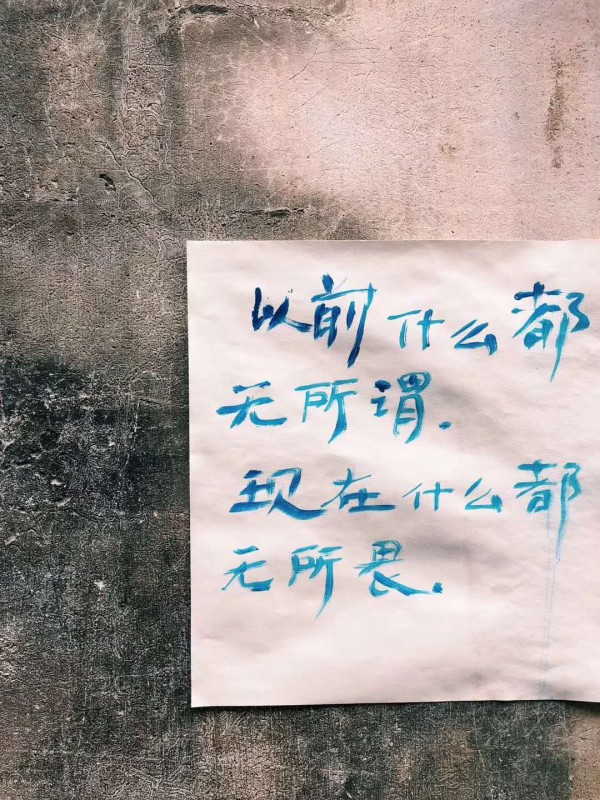 以前什么都
无所谓.
现在什么都
无所畏.